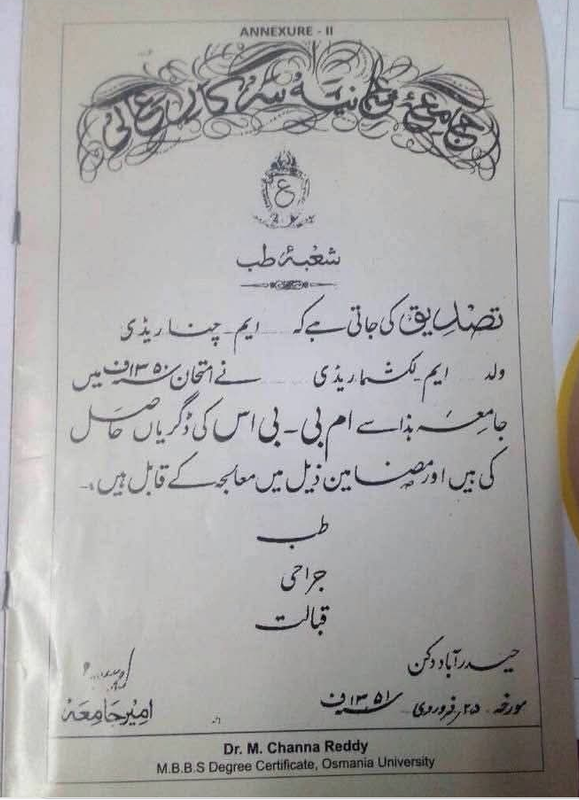 ANNEXURE - II
جامعۂ عثمانیہ سرکار عالی
ع
شعبۂ طب
تصدیق کی جاتی ہے کہ ایم۔ چنا ریڈی
ولد ایم۔ لکشما ریڈی نے امتحان سنہ ۱۳۵۰ف میں
جامعہ ہذا سے ام بی۔ بی اس کی ڈگریاں حاصل
کی ہیں اور مضامین ذیل میں معالجہ کے قابل ہیں۔
طب
جراحی
قبالت
حیدرآباد دکن
مورخہ ۲۵ فروردی سنہ ۱۳۵۱ف
امیر جامعہ
Dr. M. Channa Reddy
M.B.B.S Degree Certificate, Osmania University